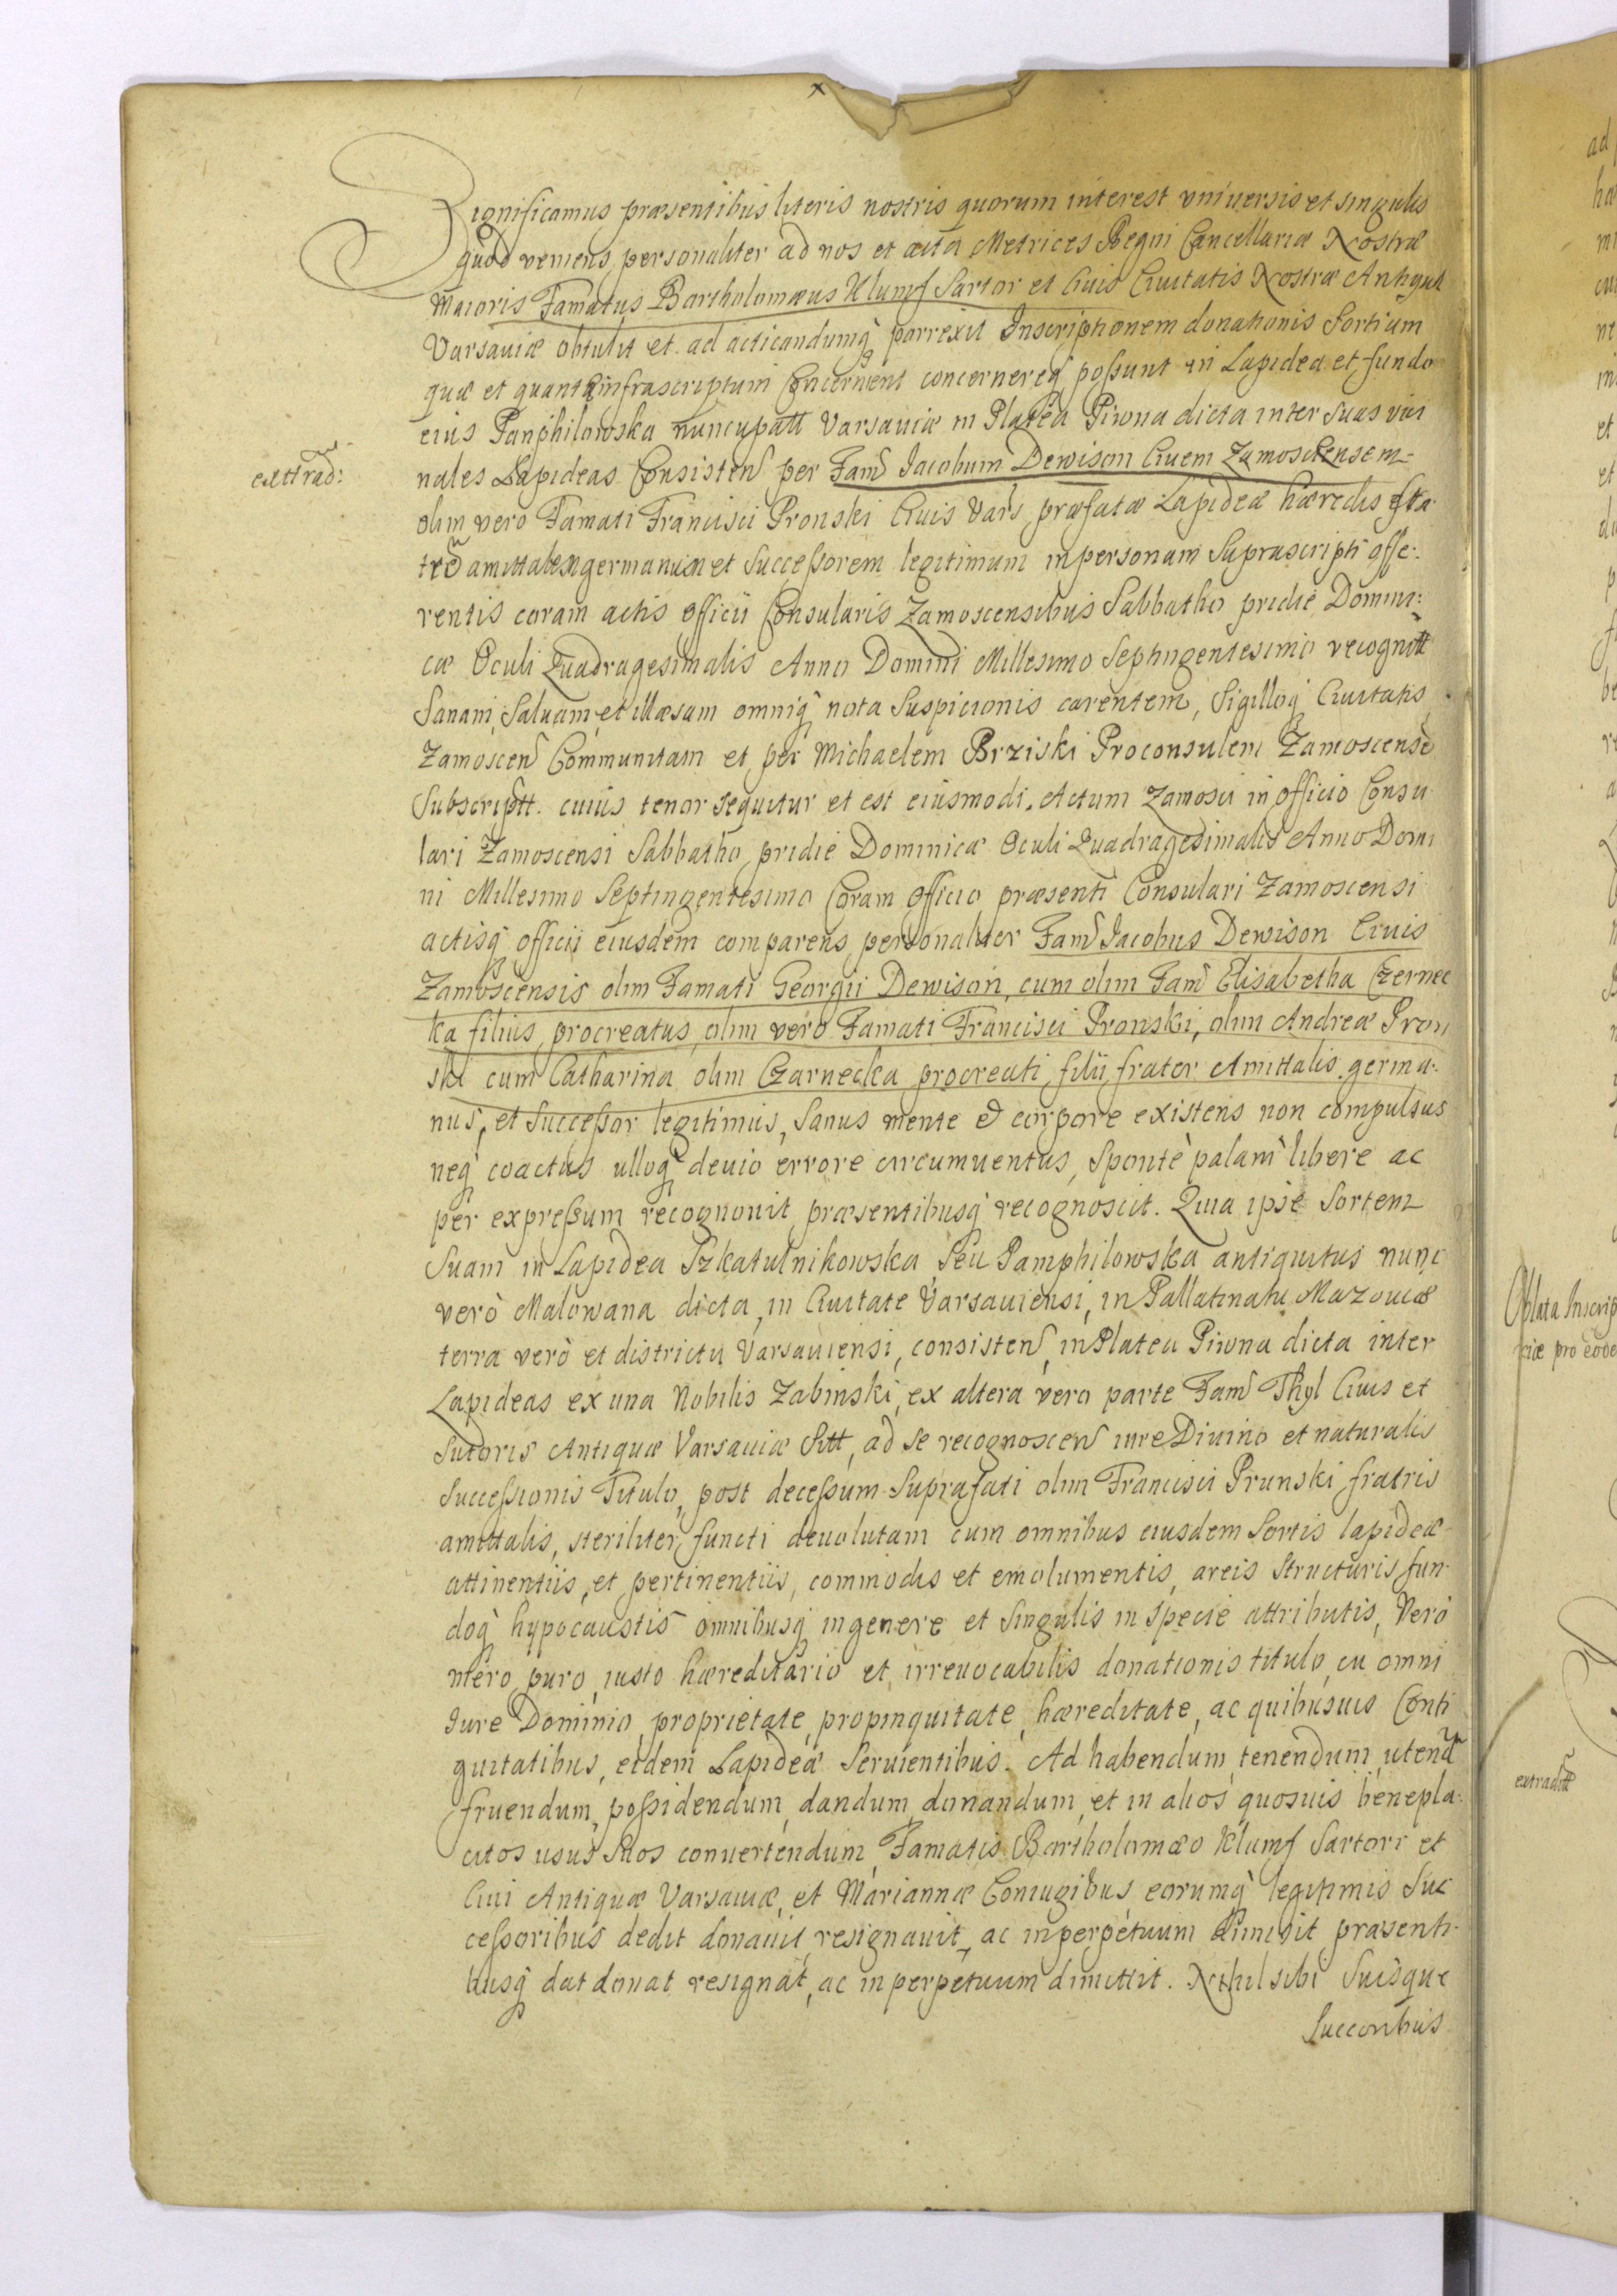 Significamus præsentibus literis nostris quorum interest vniuersis et singulis
quod veniens personaliter ad nos et acta Metrices Regni Cancellariæ Nostræ
Maioris Famatus Bartholomæus Klumf Sartor et Ciuis Ciuitatis Nostræ Antiquæ
Varsauiæ obtulit et ad acticandumq porrexit Inscriptionem donationis Sortium
quæ et quanta infrascriptum Concernent concernereq possunt in Lapidea et fundo
eius Panphilowska nuncupatt Varsauiæ in Platea Piwna dicta inter suas vici
nales Lapideas Consisten per Fam Jacobum Dewison Ciuem Zamoscensem
exttrad:
olim vero Famati Francisci Pronski Ciuis Vars præfatæ Lapideæ hæredis fra
tre amittalem germanum et Successorem legitimum in personam Suprascripti offe:
rentis coram actis officii Consularis Zamoscensibus Sabbatho pridie Domini:
cæ Oculi Quadragesimalis Anno Domini Millesimo Septingentesimo recognitt
Sanam, Saluam, et illæsam omniq nota Suspicionis carentem, Sigilloq Ciuitatis
Zamoscen Communitam et per Michaelem Brziski Proconsulem Zamoscense
Subscriptt. cuius tenor sequitur et est eiusmodi. Actum Zamosci in officio Consu
lari Zamoscensi Sabbatho pridie Dominicæ Oculi Quadragesimalis Anno Domi
ni Millesimo Septingentesimo Coram officio præsenti Consulari Zamoscensi
actisq officii eiusdem comparens personaliter Fam Jacobus Dewison Ciuis
Zamoscensis olim Famati Georgii Dewison, cum olim Fam Elisabetha Czernec
ka filius procreatus, olim vero Famati Francisci Pronski, olim Andreæ Pron
ski cum Catharina olim Czarnecka procreati filii frater Amittalis germa:
nus, et Successor legitimus, Sanus mente et corpore existens non compulsus
neq coactus ulloq deuio errore circumuentus, Sponte palam libere ac
per expressum recognouit, præsentibusq recognoscit. Quia ipse Sortem
Suam in Lapidea Szkatulnikowska Seu Pamphilowska antiquitus nunc
vero Malowana dicta, in Ciuitate Varsauiensi, in Pallatinatu Mazouiæ
terra vero et districtu Varsauiensi, consisten, in Platea Piwna dicta inter
Lapideas ex una Nobilis Zabinski, ex altera vero parte Fam Thyl Ciuis et
Sutoris Antiquæ Varsauiæ Sitt, ad se recognoscen iure Diuino et naturalis
Successionis Titulo, post decessum Suprafati olim Francisci Prunski fratris
amittalis, steriliter functi deuolutam cum omnibus eiusdem Sortis lapideæ
attinentiis, et pertinentiis, commodis et emolumentis, areis Structuris fun
doq hypocaustis omnibusq in genere et Singulis in Specie attributis, Vero
mero, puro, iusto hæreditario et irreuocabilis donationis titulo, cu omni
Jure Dominio, proprietate, propinquitate, hæreditate, ac quibusuis Conti
guitatibus, eidem Lapideæ Seruientibus. Ad habendum, tenendum, utend
fruendum, possidendum, dandum, donandum, et in alios quosuis benepla:
citos usus Suos conuertendum, Famatis Bartholomæo Klumf Sartori et
Ciui Antiquæ Varsauiæ, et Mariannæ Coniugibus eorumq legitimis Suc
cessoribus dedit donauit, resignauit, ac in perpetuum dimisit præsenti
busq dat donat resignat, ac in perpetuum dimittit. Nihil sibi Suisque
Succoribus
Oblata Inscrip
pro eode
extraditt